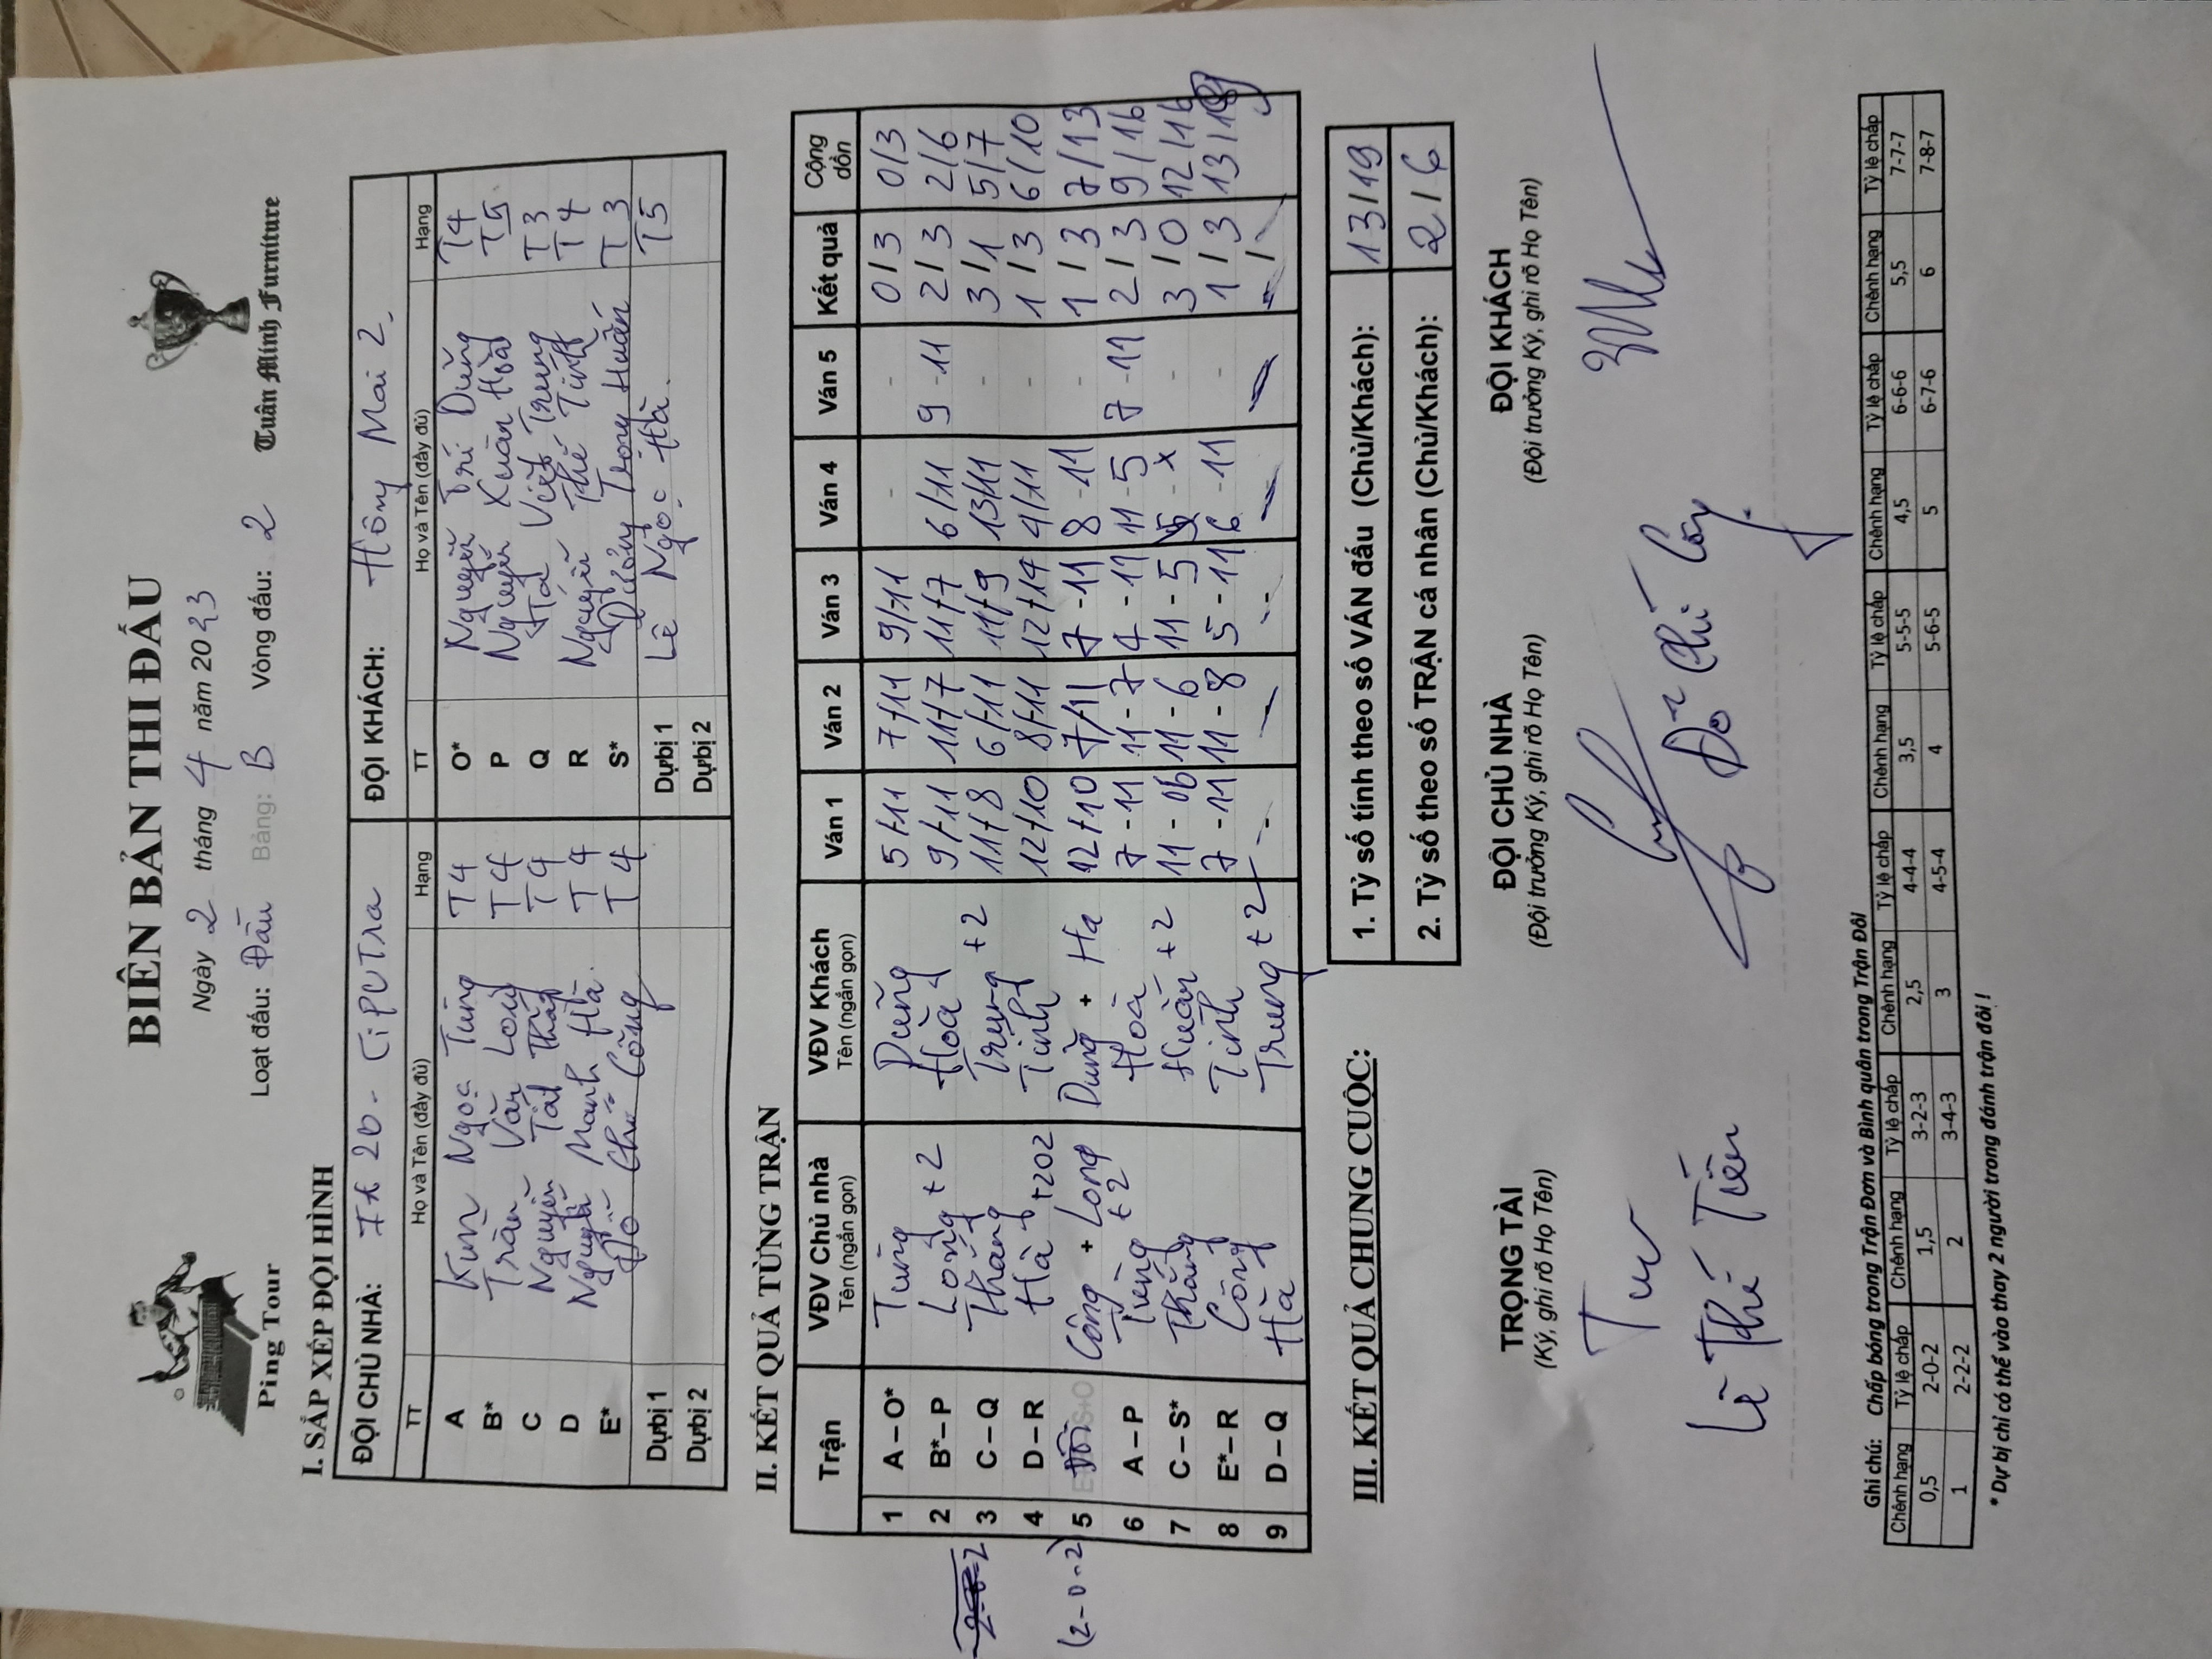 BIÊN BẢN THI ĐẤU
Ngày 2 tháng 4 năm 2023
Loạt đấu: Đầu Bảng: B Vòng đấu: 2
Ping Tour
Tuấn Minh Furniture
I. SẮP XẾP ĐỘI HÌNH
ĐỘI CHỦ NHÀ: 20 - CiPUTra ĐỘI KHÁCH: Hồng Mai 2.
TT Họ và Tên (đầy đủ) Hạng TT Họ và Tên (đầy đủ) Hạng
A Ngọc Tùng T4 O* Nguyễn Trí Dũng T4
B* Trần Văn Long T4 P Nguyễn Xuân Hoà T5
C Nguyễn Tất Thắng T4 Q Việt Trung T3
D Nguyễn Mạnh Hà. T4 R Nguyễn Thế Tình T4
E* Đỗ Chí Công T4 S* Dương Trọng Huấn T3
Dự bị 1 Dự bị 1 Lê Ngọc Hà. T5
Dự bị 2 Dự bị 2
II. KẾT QUẢ TỪNG TRẬN
Trận VĐV Chủ nhà Tên (ngắn gọn) VĐV Khách Tên (ngắn gọn) Ván 1 Ván 2 Ván 3 Ván 4 Ván 5 Kết quả Cộng dồn
1 A – O* Tùng Dũng 5/11 7/11 9/11 - - 0/3 0/3
2 B* – P Long +2 Hoà 9/11 11/7 11/7 6/11 9-11 2/3 2/6
2-0-2 3 C – Q Thắng Trung +2 11/8 6/11 11/9 13/11 - 3/1 5/7
4 D – R Hà +202 Tình 12/10 8/11 12/14 4/11 - 1/3 6/10
(2-0-2) 5 ĐÔI Công + Long Dũng + Ha 12/10 7/11 7-11 8-11 - 1/3 7/13
6 A – P Tùng +2 Hoà 7-11 11-7 4-11 11-5 7-11 2/3 9/16
7 C – S* Thắng Huấn +2 11-06 11-6 11-5 x 3/0 12/16
8 E* – R Công Tình 7-11 11-8 5-11 6-11 - 1/3 13/19
9 D – Q Hà Trung +2 - - - - - /
III. KẾT QUẢ CHUNG CUỘC:
1. Tỷ số tính theo số VÁN đấu (Chủ/Khách): 13/19
2. Tỷ số theo số TRẬN cá nhân (Chủ/Khách): 2/6
TRỌNG TÀI ĐỘI CHỦ NHÀ ĐỘI KHÁCH
(Ký, ghi rõ Họ Tên) (Đội trưởng Ký, ghi rõ Họ Tên) (Đội trưởng Ký, ghi rõ Họ Tên)
Lê Thế Tiến Đỗ Chí Công
Ghi chú: Chấp bóng trong Trận Đơn và Bình quân trong Trận Đôi
Chênh hạng Tỷ lệ chấp Chênh hạng Tỷ lệ chấp Chênh hạng Tỷ lệ chấp Chênh hạng Tỷ lệ chấp Chênh hạng Tỷ lệ chấp Chênh hạng Tỷ lệ chấp
0,5 2-0-2 1,5 3-2-3 2,5 4-4-4 3,5 5-5-5 4,5 6-6-6 5,5 7-7-7
1 2-2-2 2 3-4-3 3 4-5-4 4 5-6-5 5 6-7-6 6 7-8-7
* Dự bị chỉ có thể vào thay 2 người trong đánh trận đôi !